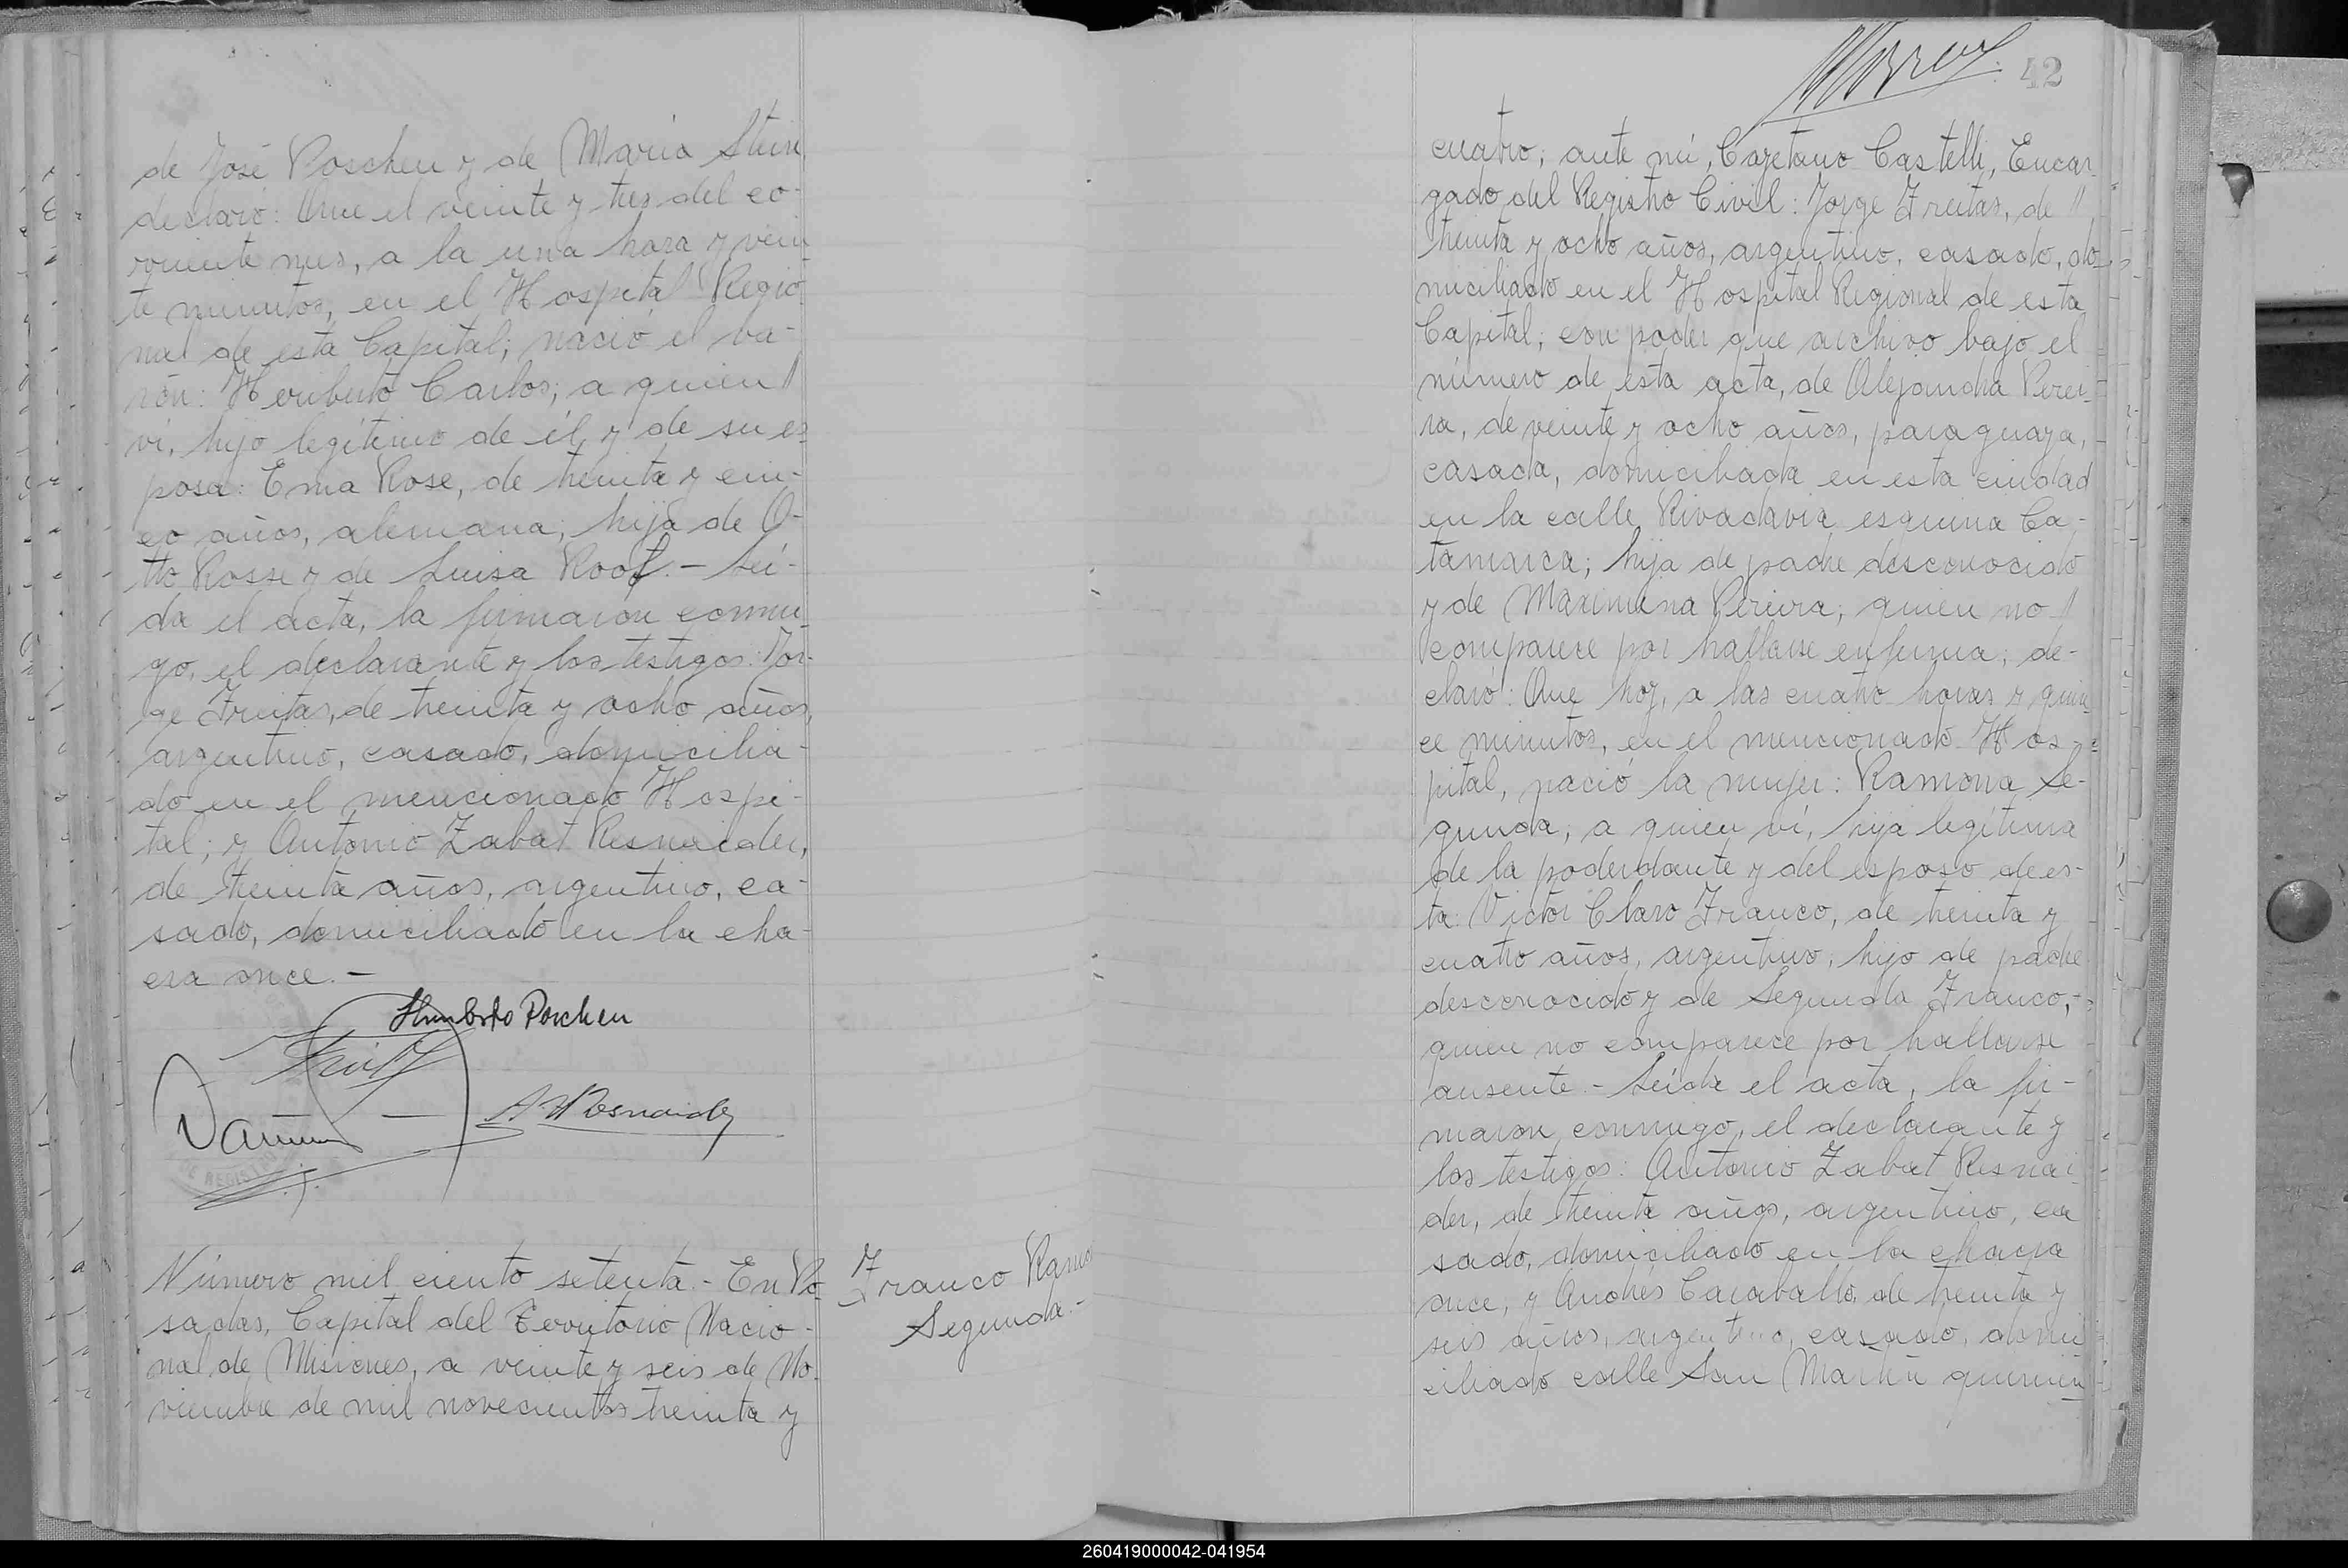 de José Poschen y de María Stein
declaró: Que el veinte y tres del co-
rriente mes, a la una hora y vein
te minutos, en el Hospital Regio-
nal de esta Capital; nació el va-
rón: Heriberto Carlos; a quien //
ví, hijo legítimo de él y de su es-
posa: Ema Rose, de treinta y cin-
co años, alemana; hija de O-
tto Rosse y de Luisa Roof.- Leí-
da el acta, la firmaron conmi-
go, el declarante y los testigos: Jor-
ge Freitas, de treinta y ocho años,
argentino, casado, domicilia-
do en el mencionado Hospi-
tal; y Antonio Zabat Resnaider,
de treinta años, argentino, ca-
sado, domiciliado en la cha-
cra once.-
Humberto Poschen
DE REGISTRO
Número mil ciento setenta.- En Po-
sadas, Capital del Territorio Nacio-
nal de Misiones, a veinte y seis de No-
viembre de mil novecientos treinta y
Franco Ramo
Segunda.-
42
cuatro; ante mí, Cayetano Castelli, Encar-
gado del Registro Civil: Jorge Freitas, de //
treinta y ocho años, argentino, casado, do-
miciliado en el Hospital Regional de esta
Capital; con poder que archivo bajo el
número de esta acta, de Alejandra Perei-
ra, de veinte y ocho años, paraguaya,
casada, domiciliada en esta ciudad
en la calle Rivadavia esquina Ca-
tamarca; hija de padre desconocido
y de Maximina Pereira; quien no //
comparece por hallarse enferma; de-
claró: Que hoy, a las cuatro horas y quin
ce minutos, en el mencionado Hos-
pital, nació la mujer: Ramona Se-
gunda; a quien ví, hija legítima
de la poderdante y del esposo de es-
ta: Victor Claro Franco, de treinta y
cuatro años, argentino; hijo de padre
desconocido y de Segunda Franco,-
quien no comparece por hallarse
ausente.- Leída el acta, la fir-
maron conmigo, el declarante y
los testigos: Antonio Zabat Resnai-
der, de treinta años, argentino, ca
sado, domiciliado en la chacra
once; y Andrés Caraballo, de treinta y
seis años, argentino, casado, domi
ciliado calle San Martín quinien
260419000042-041954